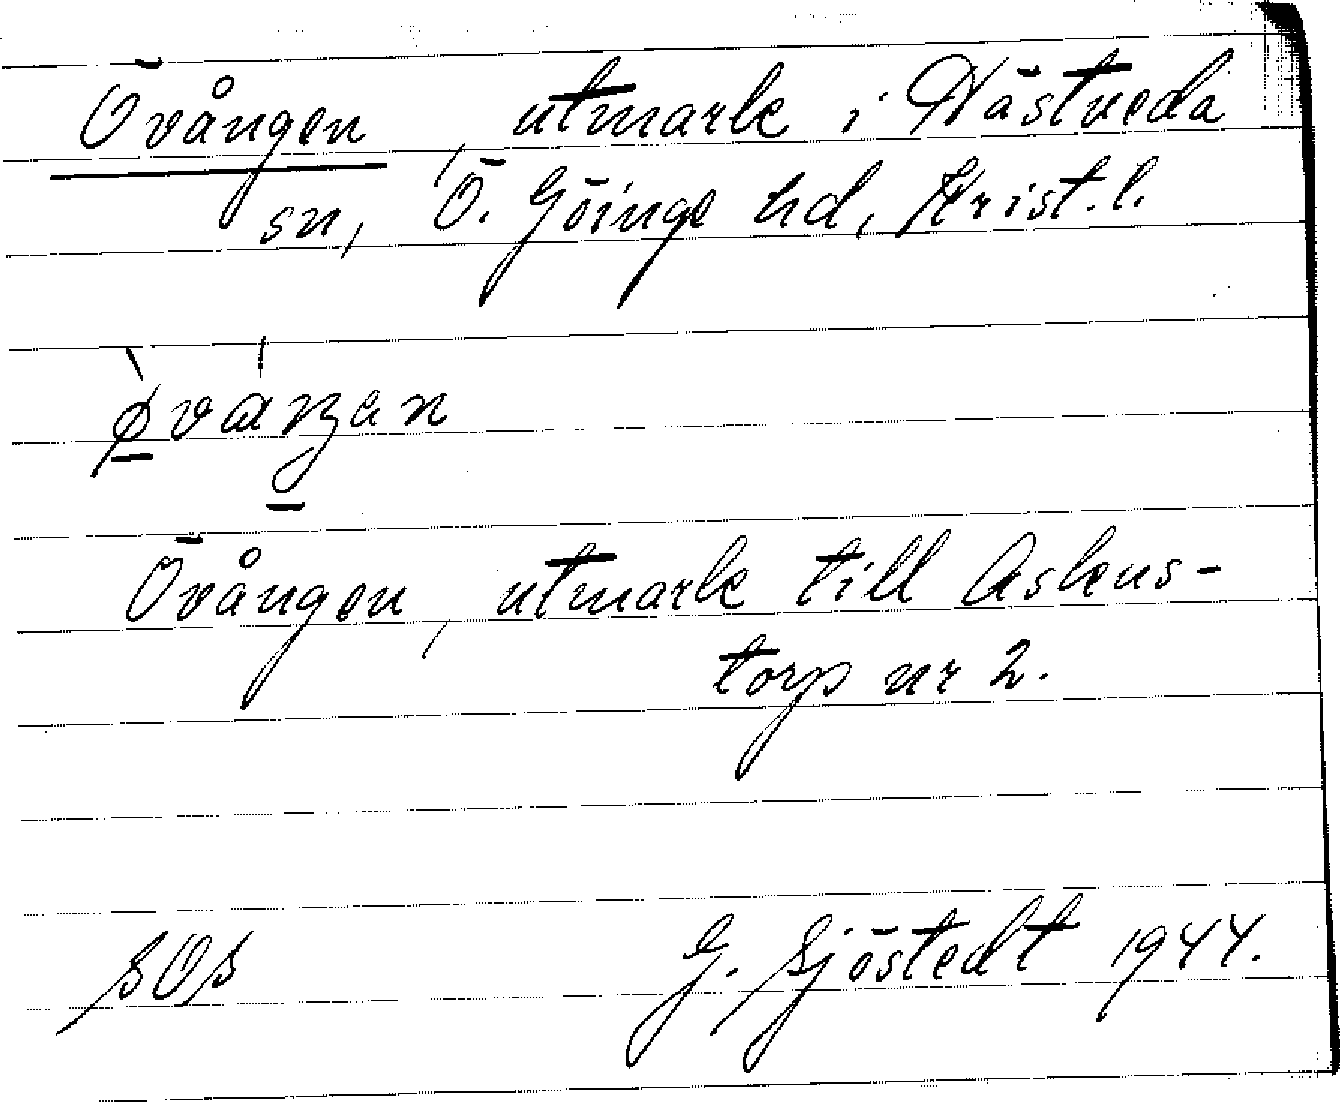 Övången, utmark i Nästveda
sn, Ö. Göinge hd, Krist. l.
Övången, utmark till Askens-
torp nr 2.
SOS G. Sjöstedt 1944.